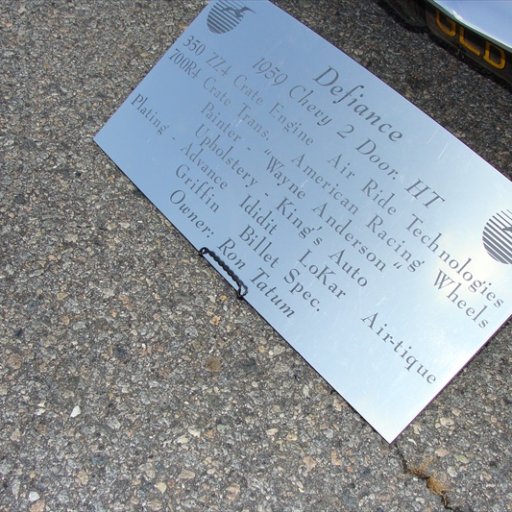 Defiance
1959 Chevy 2 Door. HT
350 ZZ4 Crate Engine Air Ride Technologies
700R4 Crate Trans. American Racing Wheels
Painter - "Wayne Anderson"
Upholstery - King's Auto
Plating - Advance Ididit LoKar Air-tique
Griffin Billet Spec.
Owner. Ron Tatum
OLD